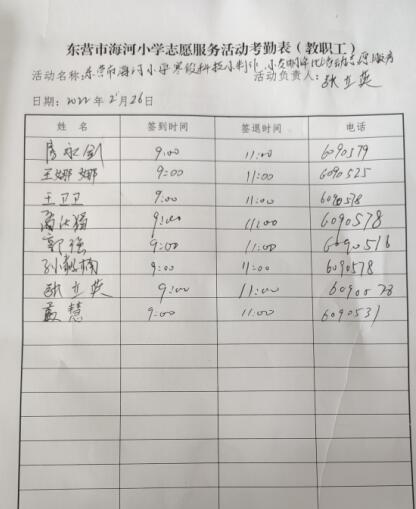 东营市海河小学志愿服务活动考勤表（教职工）
活动名称：东营市海河小学寒假科技小制作、小发明评比活动志愿服务
活动负责人：张立英
日期：2022年2月26日
姓名 签到时间 签退时间 电话
9:00 11:00 6090579
王娜娜 9:00 11:00 6090525
王卫卫 9:00 11:00 6090578
9:00 11:00 6090578
郭强 9:00 11:00 6090516
9:00 11:00 6090578
张立英 9:00 11:00 6090578
慧 9:00 11:00 6090531